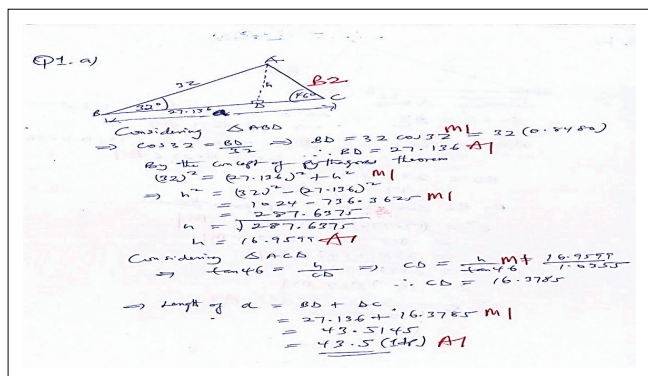 Q1. a)
A
32
h
B2
B
32°
D
46°
C
27.136
a
Considering △ABD
⇒ cos 32 = BD/32 ⇒ BD = 32 cos 32 M1 = 32 (0.8480)
∴ BD = 27.136 A1
By the concept of pythagoras theorem
(32)² = (27.136)² + h² M1
⇒ h² = (32)² - (27.136)²
= 1024 - 736.3625 M1
= 287.6375
h = √287.6375
h = 16.9599 A1
Considering △ACD
⇒ tan 46 = h/CD ⇒ CD = h/tan 46 M1 16.9599/1.0355
∴ CD = 16.3785
⇒ Length of a = BD + DC
= 27.136 + 16.3785 M1
= 43.5145
= 43.5 (1dp) A1